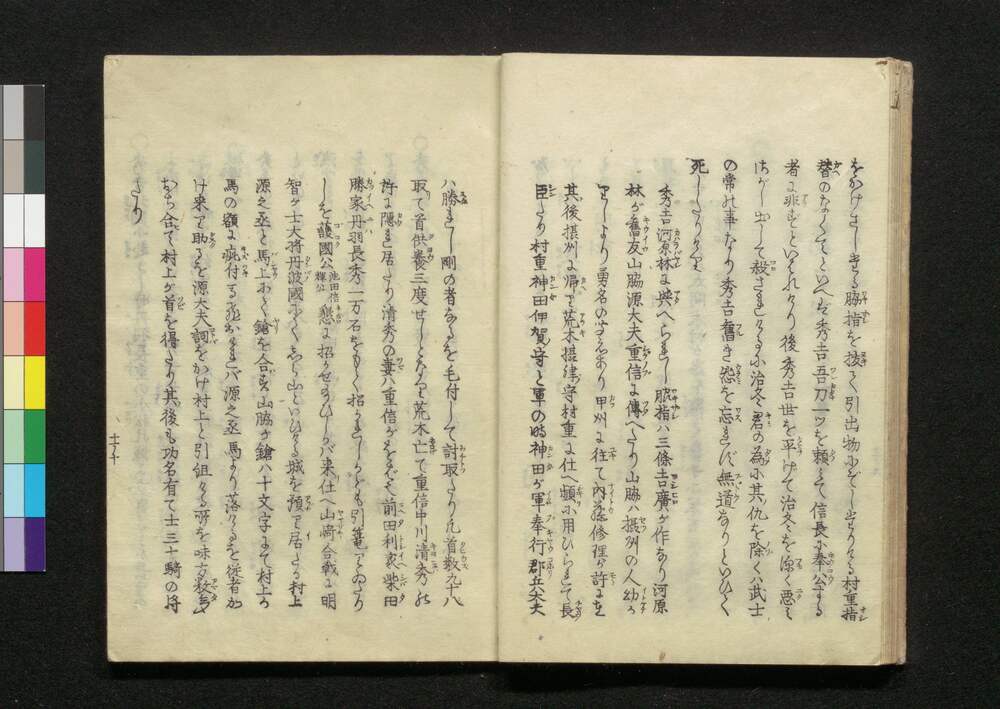 をかけさしゝ出る脇指を抜て引出物にぞし出りける村重指
替のなくてといへば秀吉吾刀一ツを頼みて信長に奉公する
者に非ずといはれけり後秀吉世を平げて治冬を深く悪み
はがし出して殺されけるに治冬君の為に其仇を除くハ武士
の常の事なり秀吉舊き怨を忘れず無道なりといひて
死したりけり
秀吉河原林に與へられし脇指ハ三條吉廣が作なり河原
林が舊友山脇源大夫重信に傳へたり山脇ハ摂州の人幼
しより勇名の聞えあり甲州に往て内藤修理が許に在
其後摂州に帰り荒木摂津守村重に仕へ頻に用ひられて長
臣たり村重神田伊賀守と軍の時神田が軍奉行郡兵大夫
ハ勝れし剛の者なるを毛付して討取たりけれ首数九十八
取て首供養三度せしとなり荒木亡て重信中川清秀の
許に隠れ居たり清秀の妻ハ重信が をば 前田利家柴田
勝家丹羽長秀一万石をもて招かれしかども引篭りゐたり
しを護國公池田信輝公懇に招かせ給ひしかバ来仕へ山崎合戦に明
智が士大将丹波國にて しら山といひける城を預り居たる村上
源之丞と馬上にて鎗を合す山脇が鎗ハ十文字にて村上が
馬の額に疵付る 源之丞馬より落けるを従者か
け来り助るを源大夫詞をかけ村上と引組ける所を味方数多
おち合て村上が首を得たり其後も功名有て士三十騎の将
たり